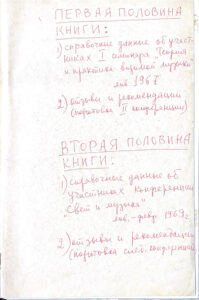 ПЕРВАЯ ПОЛОВИНА
КНИГИ:
1) справочные данные об участ-
никах I семинара "Теория
и практика видимой музыки"
янв 1967
2) отзывы и рекомендации
(подготовка II конференции)
ВТОРАЯ ПОЛОВИНА
КНИГИ:
1) справочные данные об
участниках конференции
"Свет и музыка"
янв.-февр 1969 г.
2) отзывы и рекомендации
(подготовка след. конференции)